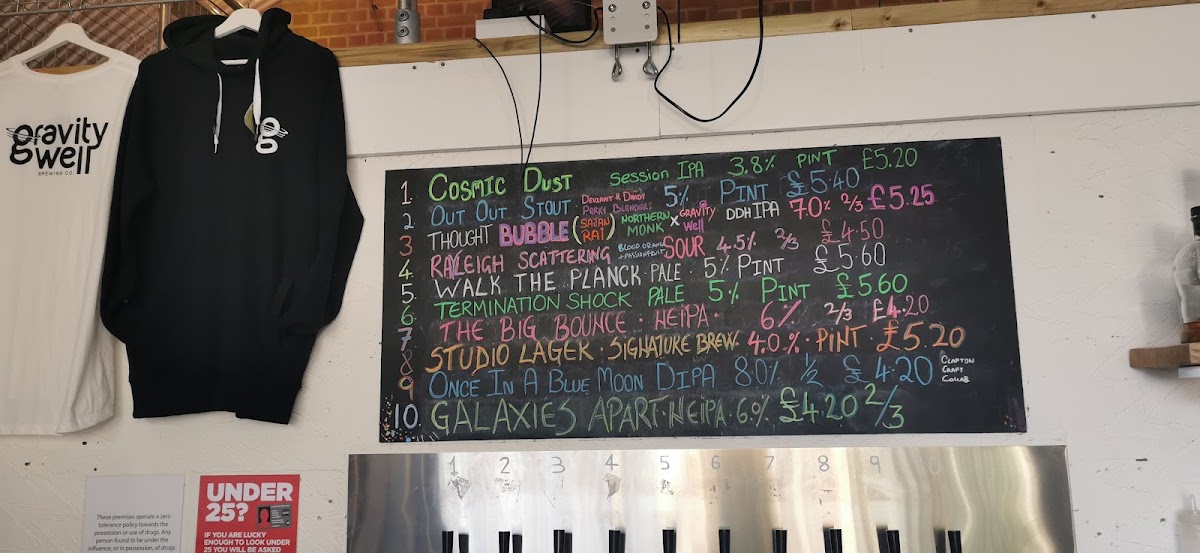 gravity
well
BREWING CO.
g
1. COSMIC DUST SESSION IPA 3.8% PINT £5.20
2 OUT OUT STOUT · DEVIANT & DANDY PERKY BLENDERS 5% PINT £5.40
3 THOUGHT BUBBLE (SAJAN RAI) NORTHERN MONK X GRAVITY WELL DDH IPA 7.0% 2/3 £5.25
4. RAYLEIGH SCATTERING BLOOD ORANGE + PASSIONFRUIT SOUR 4.5% 2/3 £4.50
5. WALK THE PLANCK · PALE · 5% PINT £5.60
6. TERMINATION SHOCK PALE 5% PINT £5.60
7 THE BIG BOUNCE · NEIPA · 6% 2/3 £4.20
8 STUDIO LAGER · SIGNATURE BREW · 4.0% · PINT · £5.20
9 ONCE IN A BLUE MOON DIPA 8.0% 1/2 £4.20 CLAPTON CRAFT COLLAB
10. GALAXIES APART · NEIPA · 6.0% £4.20 2/3
1 2 3 4 5 6 7 8 9
These premises operate a zero
tolerance policy towards the
possession or use of drugs. Any
person found to be under the
influence, or in possession, of drugs
UNDER
25?
IF YOU ARE LUCKY
ENOUGH TO LOOK UNDER
25 YOU WILL BE ASKED